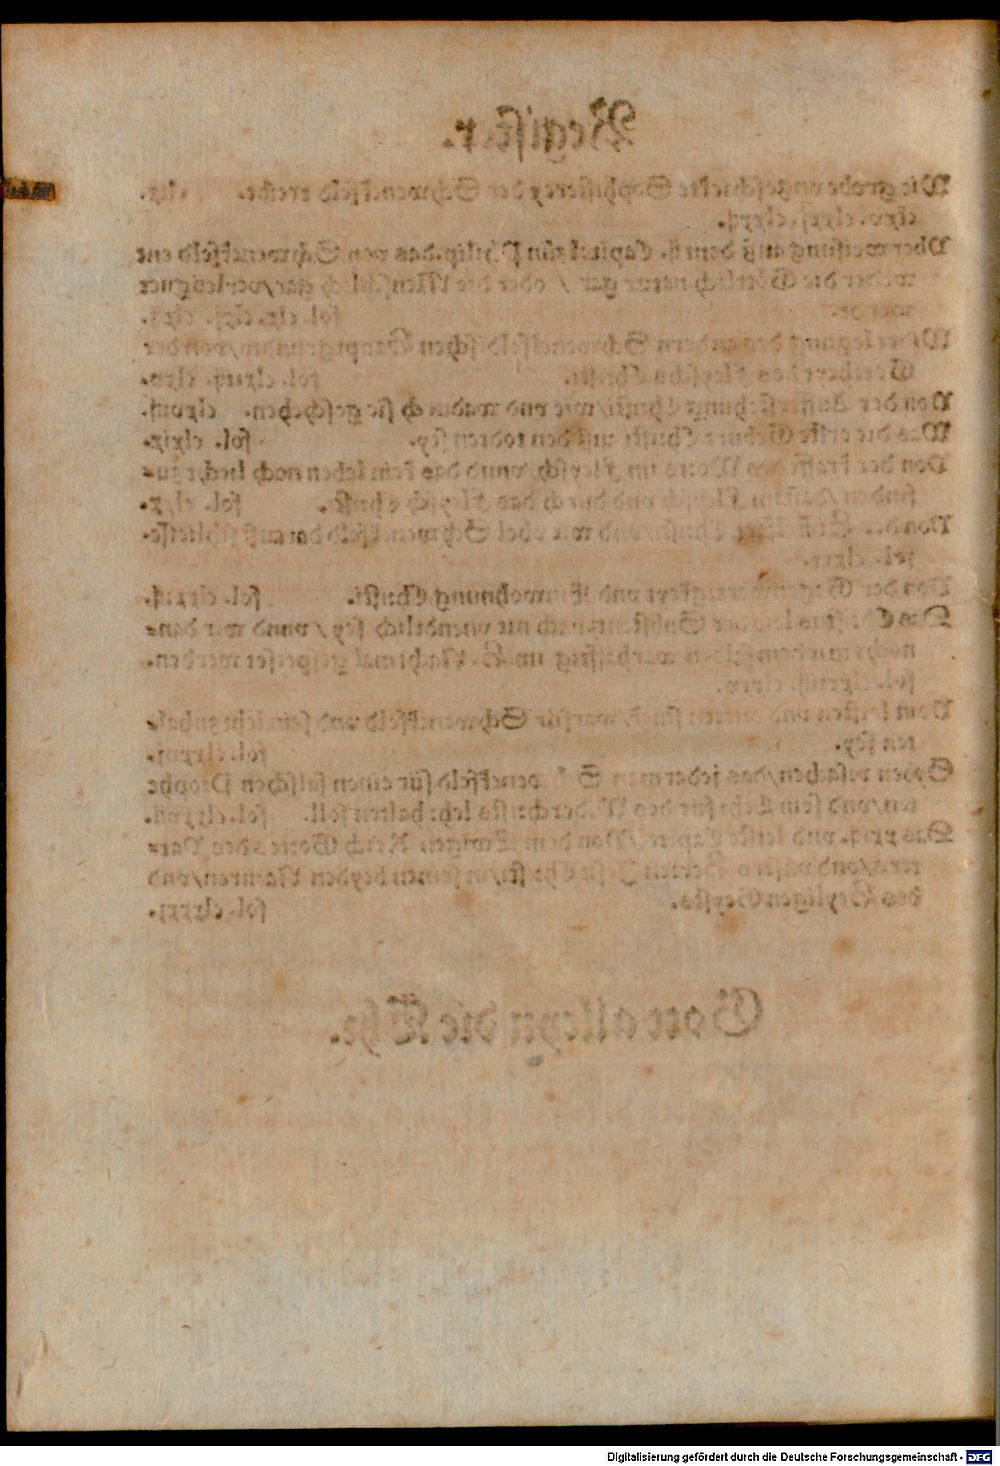 Register.
Wie grobe ungeschickte Sophisterey der Schwenckfeld treibt. clix.
clxv. clxxj. clxxij.
Vberweisung auß dem ij. Capitel zůn Philip. das von Schwenckfeld ent
weder die Göttlich natur gar / oder die Menschlich gar/verleugnet
werde. fol. clx. clxj. clxx.
Widerlegung des andern Schwenckfeldischen Hauptgrunds/von der
Gottheyt des Fleyschs Christi. fol. clxiiij. clxv.
Von der Aufferstehung Christi/wie vnd wadurch sie geschehen. clxviij.
Was die erste Geburt Christi auß den todten sey. fol. clxix.
Von der krafft des Worts im Fleysch/vnnd das kein leben noch liecht zu-
finden/dañ im Fleysch vnd durch das Fleysch Christi. fol. clxx.
Von der Christi/vnd wie vbel Schwenckfeld darauß schliesse.
fol. clxxj.
Von der Gegenwertigkeyt vnd Einwohnung Christi. fol. clxxij.
Das Christus leib der Substantz nach nit vnendtlich sey / vnnd wir dan-
noch mit dem selben warhafftig im H. Nachtmal gespeiset werden.
fol. clxxiij. clxxv.
Vom leisten vnd warfür Schwenckfeld vnd sein zuhal-
ten sey. fol. clxxvj.
Syben vrsachen/das jederman Schwenckfeld für einen falschen Prophe
ten/vnd sein Lehr für des Widerchrists lehr halten soll. fol. clxxvij.
Das xxxij. vnd letste Capitel/Von dem Ewigen Reich Gottes des Vat-
ters/vnd vnsers Herren Jesu Christi/in seinen beyden Naturen/vnd
des Heyligen Geysts. fol. clxxxj.
Gott alleyn die Ehr.
Digitalisierung gefördert durch die Deutsche Forschungsgemeinschaft - DFG